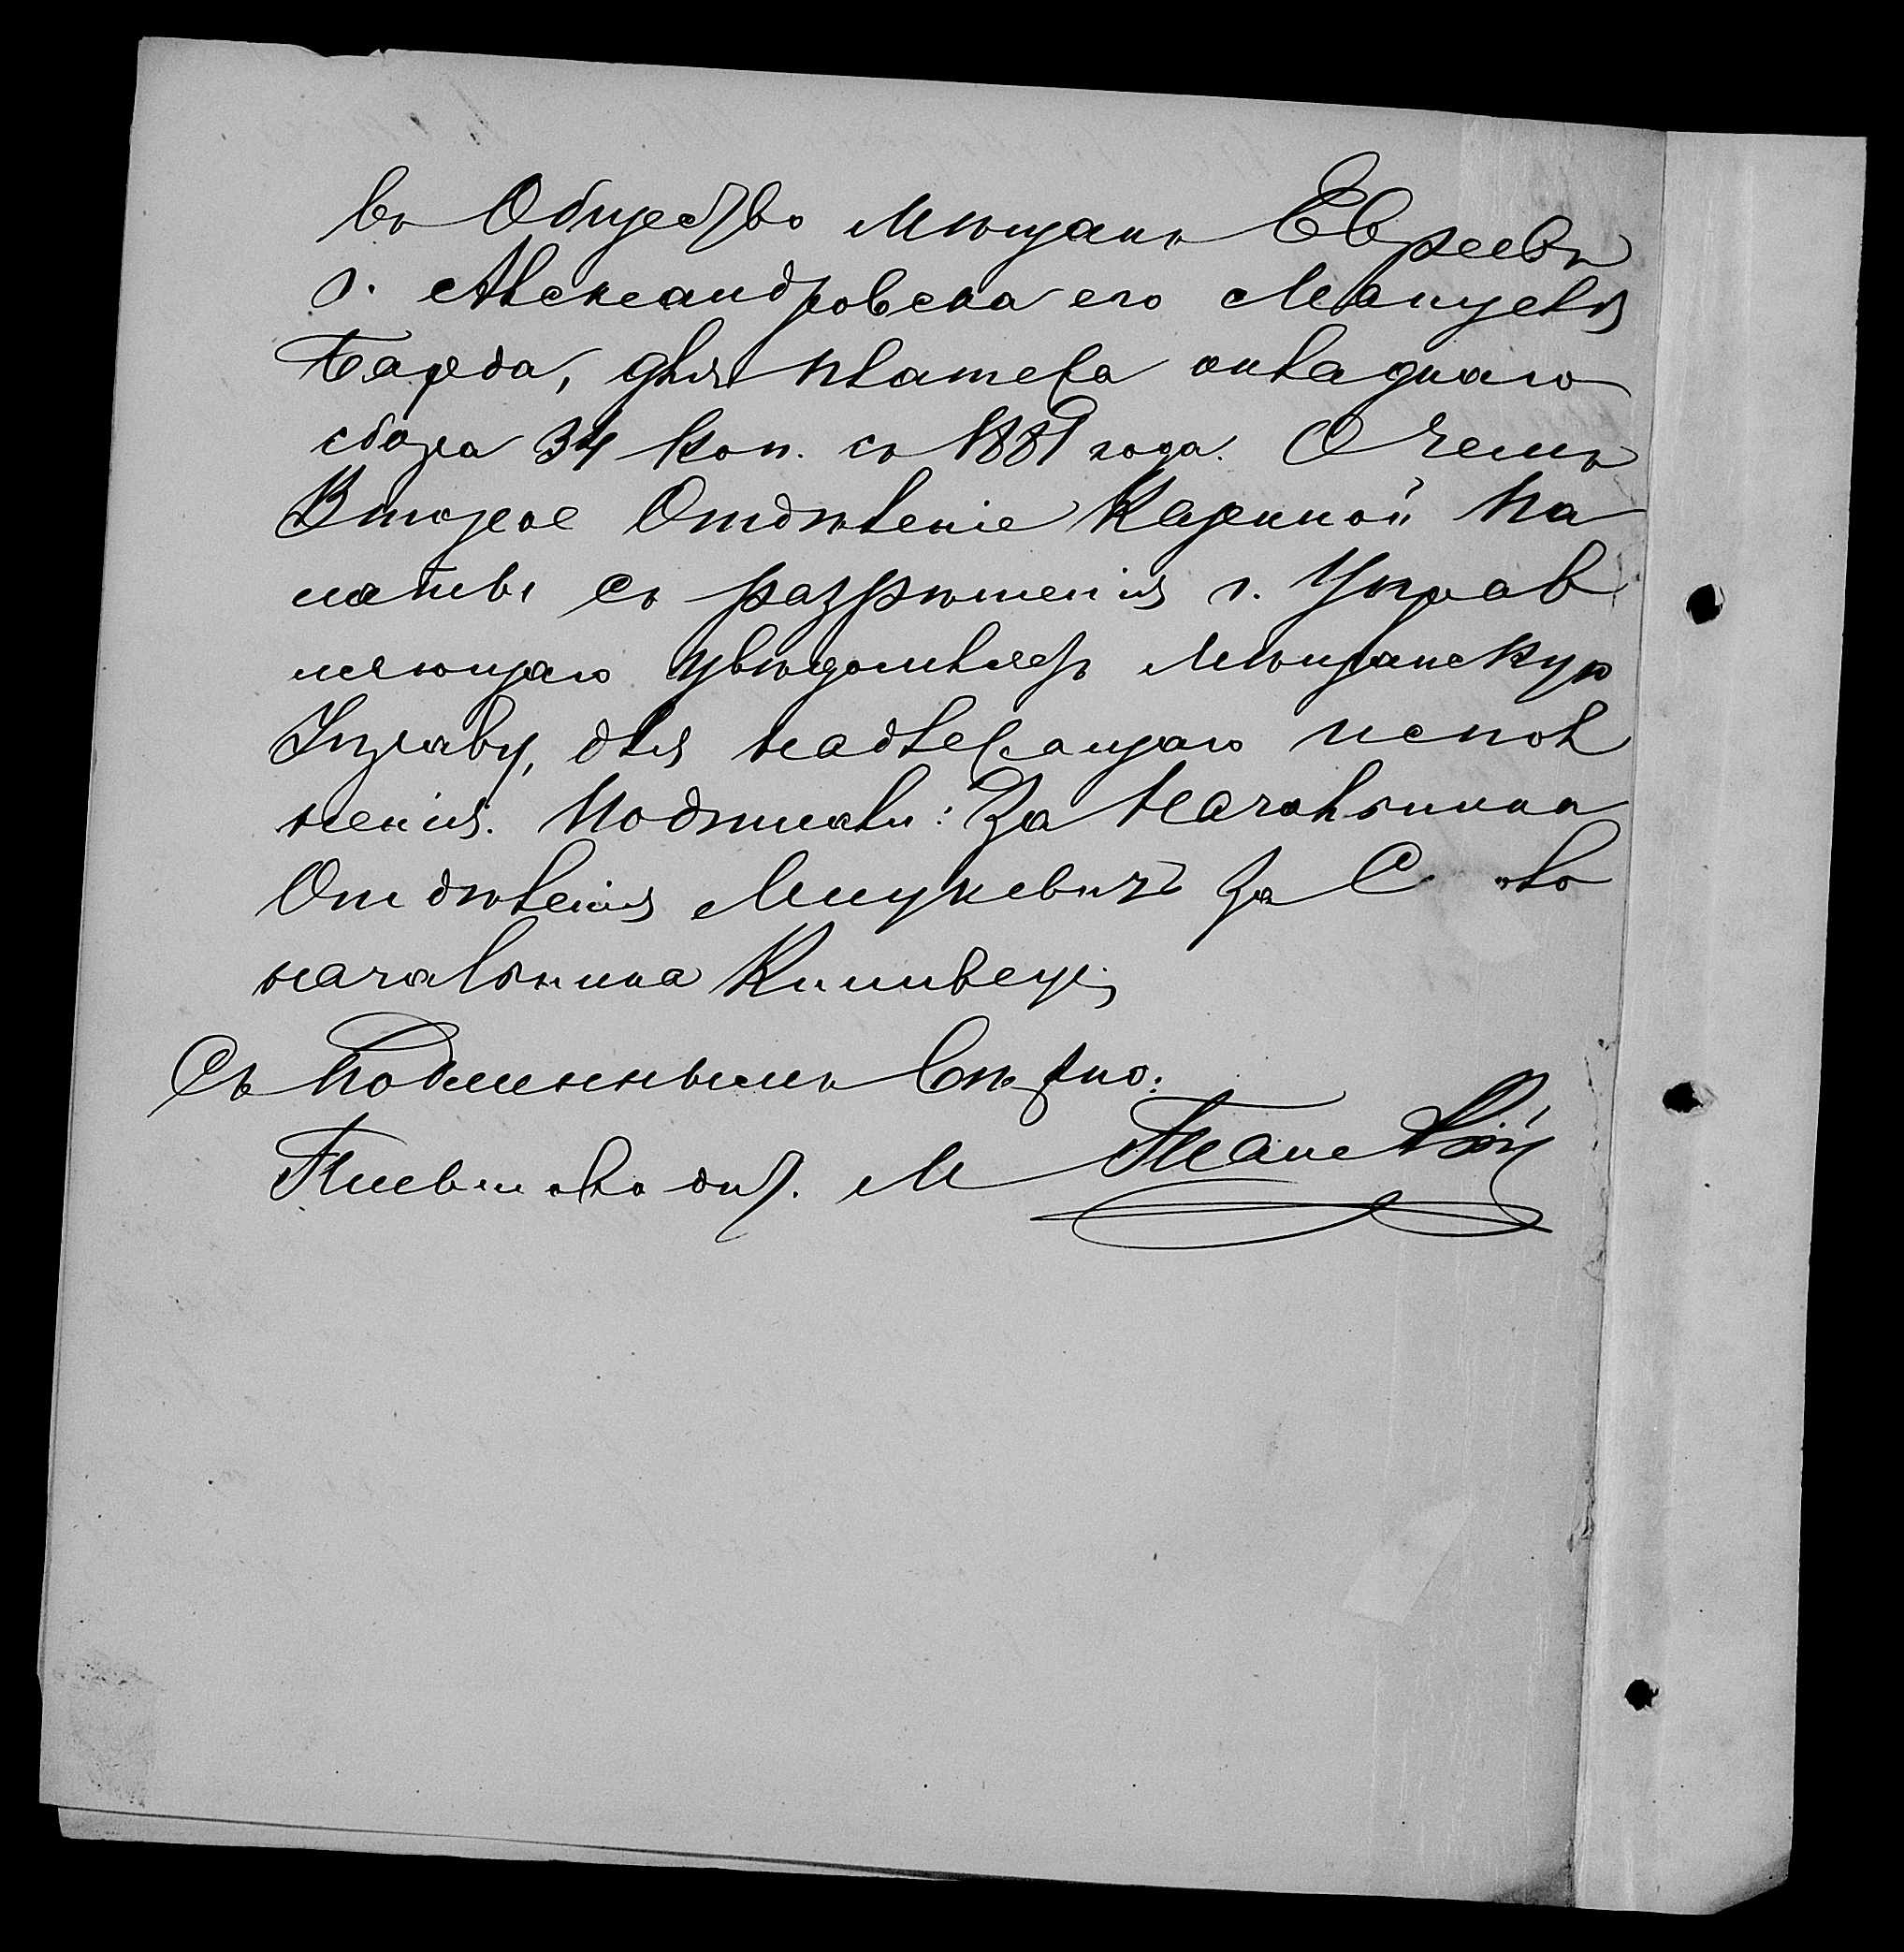 въ Общество Мѣщанъ Евреевъ
г. Александровска его Мануеля
Барба, для платежа окладнаго
сбора 34 коп. съ 1889 года. О чемъ
Второе Отдѣленіе Казенной Па
латы съ разрѣшенія г. Управ
ляющаго увѣдомляетъ Мѣщанскую
Управу, для надлежащаго испол
ненія. Подписали: За Начальника
Отдѣленія за Стол
начальника
Съ подлиннымъ вѣрно:
М